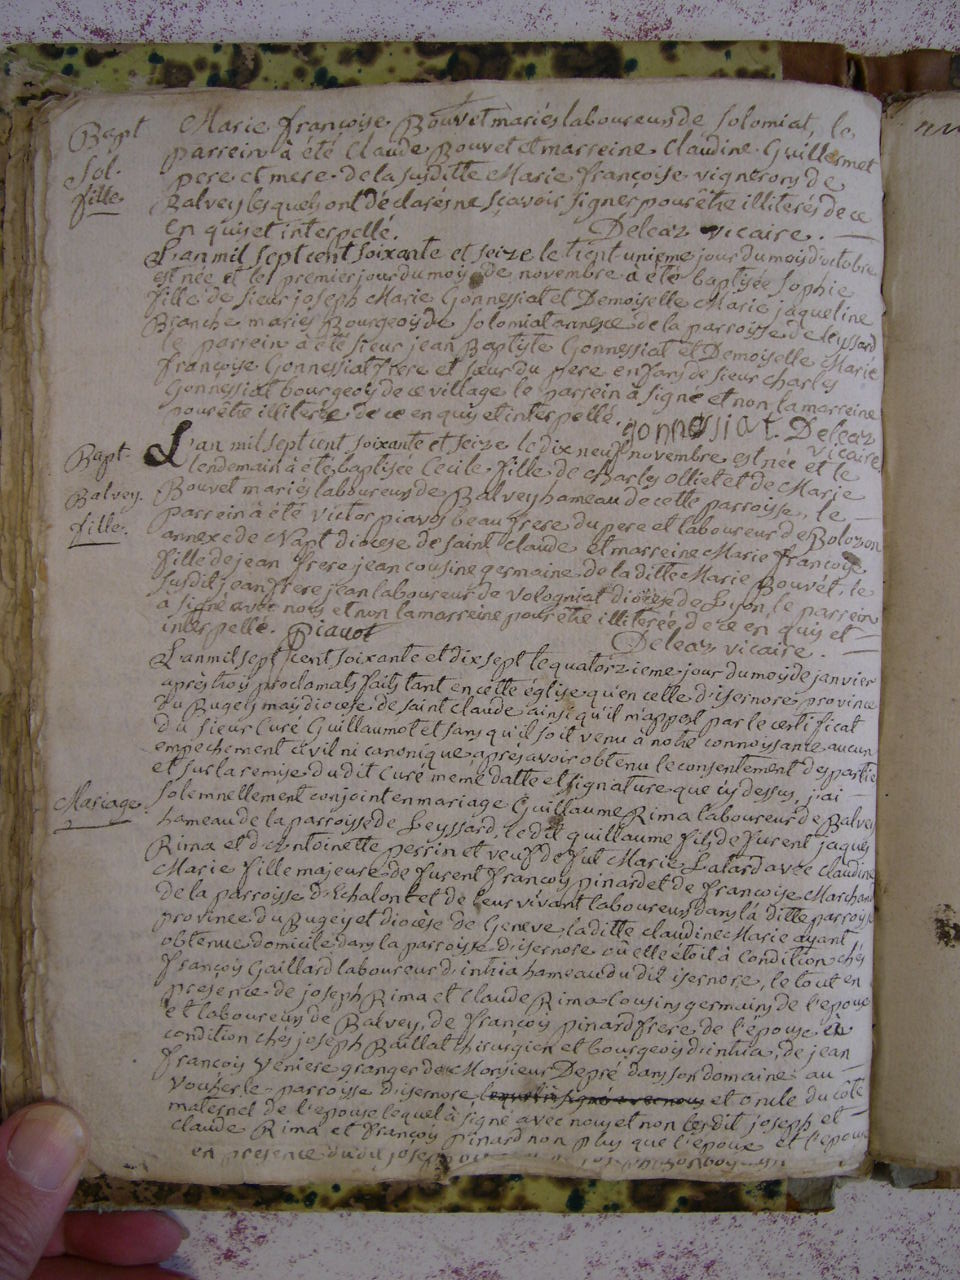 Bapt
Sol.
fille.
Marie françoise Bouvet mariés laboureurs de Solomiat, le
parrein à été Claude Bouvet et marreine Claudine Guillermet
pere et mere de la susditte Marie françoise vignerons de
Balvey lesquels ont déclarés ne sçavoir signer pour être illiterés de ce
en quis et interpellé. Deleaz vicaire.
L'an mil sept cent soixante et seize le trent unieme jour du moys d'octobre
est née et le premier jour du moys de novembre à été baptisée Sophie
fille de sieur joseph Marie Gonnessiat et Demoiselle Marie jaqueline
Branche mariés Bourgeois de Solomiat annexe de la parroisse de Leyssard
le parrein à été sieur jean Baptiste Gonnessiat et Demoiselle Marie
françoise Gonnessiat frere et sœur du pere enfans de sieur Charles
Gonnessiat bourgeois de ce village le parrein à signé et non la marreine
pour être illiterée de ce en quis et interpellé. gonnessiat. Deleaz
vicaire
Bapt.
Balvey.
fille.
L'an mil sept cent soixante et seize le dix neuf novembre est née et le
lendemain à été baptisée Cecile fille de Charles Olliet et de Marie
Bouvet mariés laboureurs de Balvey hameau de cette parroisse, le
parrein à été Victor piavos beau frere du pere et laboureur de Bolozon
annexe de Napt diocese de saint Claude et marreine Marie françoise
fille de jean frere jean cousine germaine de la ditte Marie Bouvét, le
susdit jean frere jean laboureur de Volognat diocese de Lyon, le parrein
à signé avec nous et non la marreine pour être illiterée, de ce en quis et
interpellé. Piavot Deleaz vicaire.
L'an mil sept cent soixante et dix sept le quatorzieme jour du moys de janvier
après troys proclamats faits tant en cette église qu'en celle d'isernore province
du Bugey mays diocese de saint Claude ainsi qu'il m'appert par le certificat
du sieur Curé Guillaumot et sans qu'il soit venu à notre connoissance aucun
empechement civil ni canonique, après avoir obtenu le consentement des parties
et sur la remise du dit Curé meme datte et signature que cy dessus, j'ai
Mariage.
solemnellement conjoint en mariage Guillaume Rima laboureur de Balvey
hameau de la parroisse de Leyssard, le dit guillaume fils de furent jaques
Rima et d'Antoinette perrin et veuf de fut Marie Latard avec claudine
Marie fille majeure de furent françoys pinard et de françoise Marchand
de la parroisse d'Echalon et de leur vivant laboureurs dans la ditte parroisse
province du Bugey et diocèse de Geneve, la ditte claudine Marie ayant
obtenue domicile dans la parroisse d'isernore ou elle étoit à condition chés
françoys Gaillard laboureur d'intria hameau du dit isernore, le tout en
presence de joseph Rima et Claude Rima Cousins germains de l'epoux
et laboureurs de Balvey, de françoys pinard frere de l'épouse en
condition chés joseph Baillat chirurgien et bourgeois d'intria, de jean
françoys Veniere granger de Monsieur Depré dans son domaine au
parroisse d'isernore lequel à signé avec nous et oncle du côté
maternel de l'epouse lequel à signé avec nous et non lesdit joseph et
claude Rima et françoys pinard non plus que l'epoux et l'epouse
en presence du dit joseph